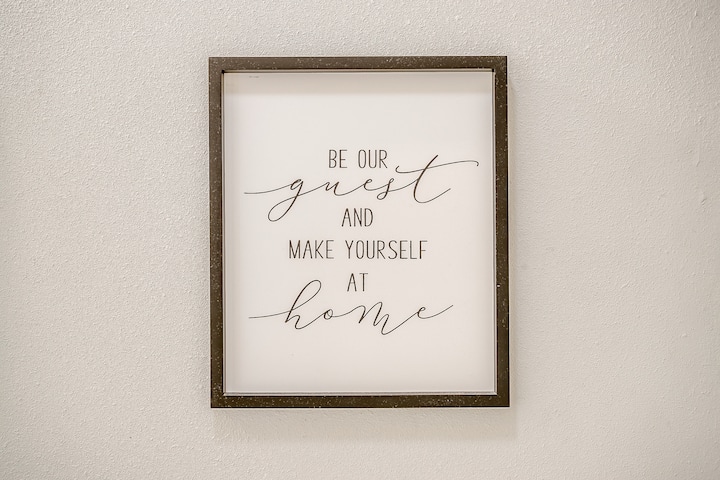 BE OUR
guest
AND
MAKE YOURSELF
AT
home